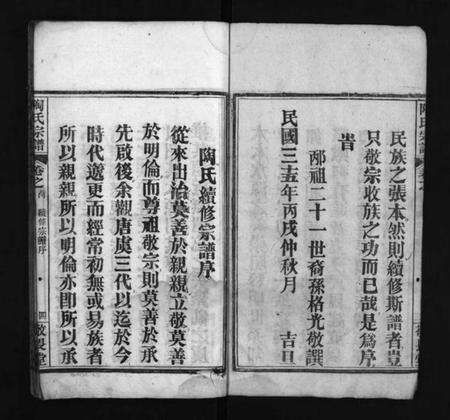 民族之張本然則續修斯譜者豈
只敬宗收族之功而已哉是爲序
旹
邴祖二十一世裔孫格光敬譔
民國三十五年丙戌仲秋月 吉日
陶氏宗譜
卷之
陶氏續修宗譜序
從來出治莫善於親親立敬莫善
於明倫而尊祖敬宗則莫善於承
先啟後余觀唐虞三代以迄於今
時代遞更而經常初無或易族者
所以親親所以明倫亦即所以承
陶氏宗譜
卷之首
續修宗譜序
四